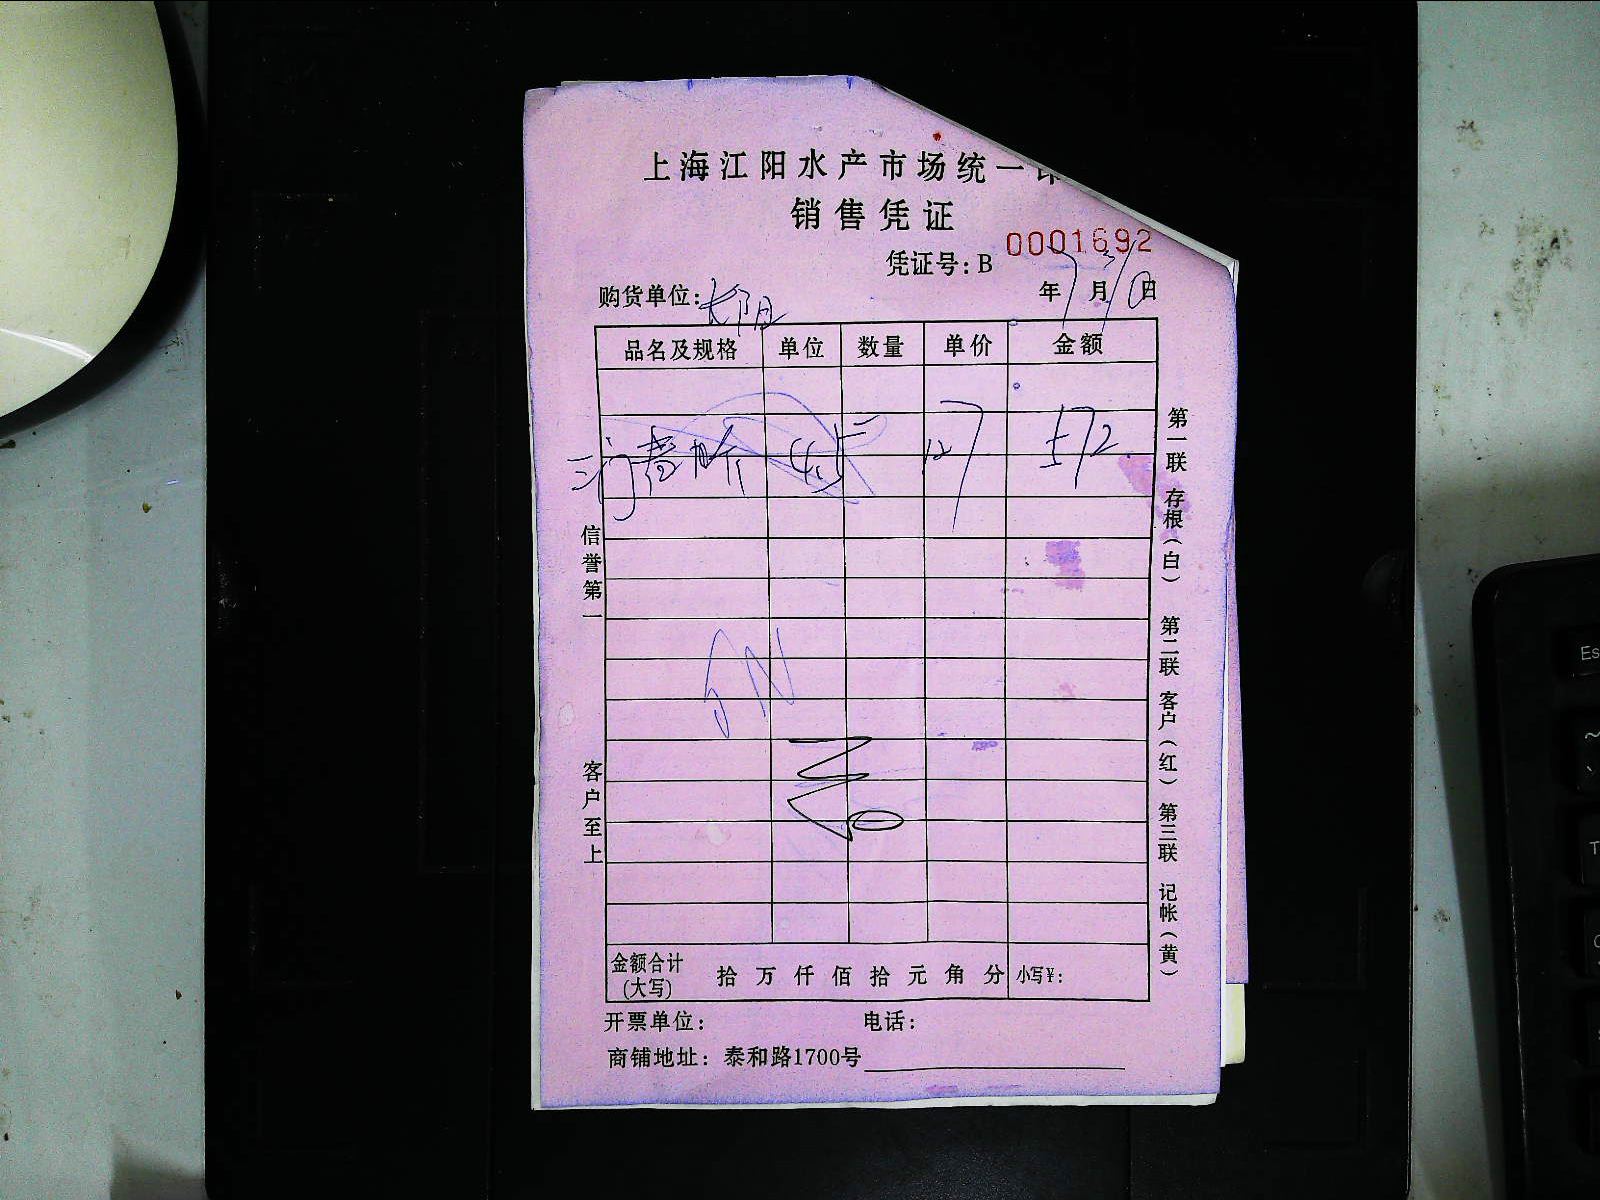 上海江阳水产市场统一印
销售凭证
凭证号：B 0001692
购货单位： 年7月31日
品名及规格 单位 数量 单价 金额
127 572
信誉第一
客户至上
第一联 存根（白） 第二联 客户（红） 第三联 记帐（黄）
金额合计（大写） 拾 万 仟 佰 拾 元 角 分 小写¥：
开票单位： 电话：
商铺地址：泰和路1700号